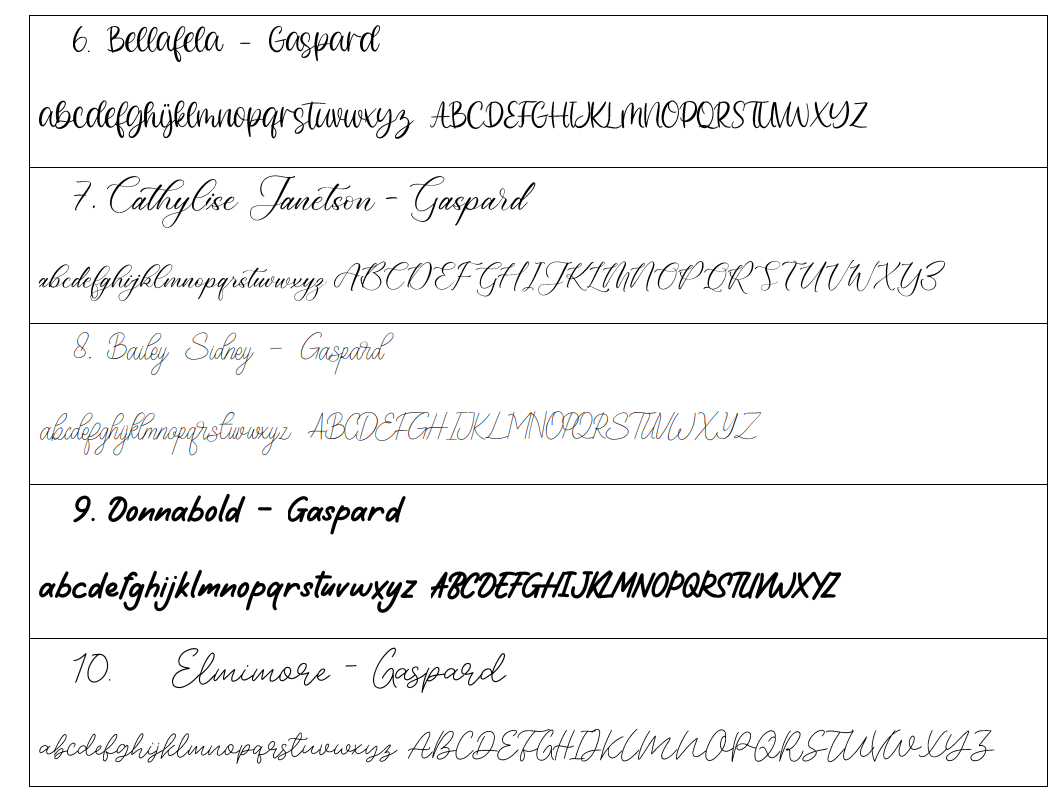 6. Bellafela - Gaspard
abcdefghijklmnopqrstuvwxyz ABCDEFGHIJKLMNOPQRSTUVWXYZ
7. Cathylise Janetson - Gaspard
abcdefghijklmnopqrstuvwxyz ABCDEFGHIJKLMNOPQRSTUVWXYZ
8. Bailey Sidney - Gaspard
abcdefghijklmnopqrstuvwxyz ABCDEFGHIJKLMNOPQRSTUVWXYZ
9. Donnabold - Gaspard
abcdefghijklmnopqrstuvwxyz ABCDEFGHIJKLMNOPQRSTUVWXYZ
10. Elmimore - Gaspard
abcdefghijklmnopqrstuvwxyz ABCDEFGHIJKLMNOPQRSTUVWXYZ